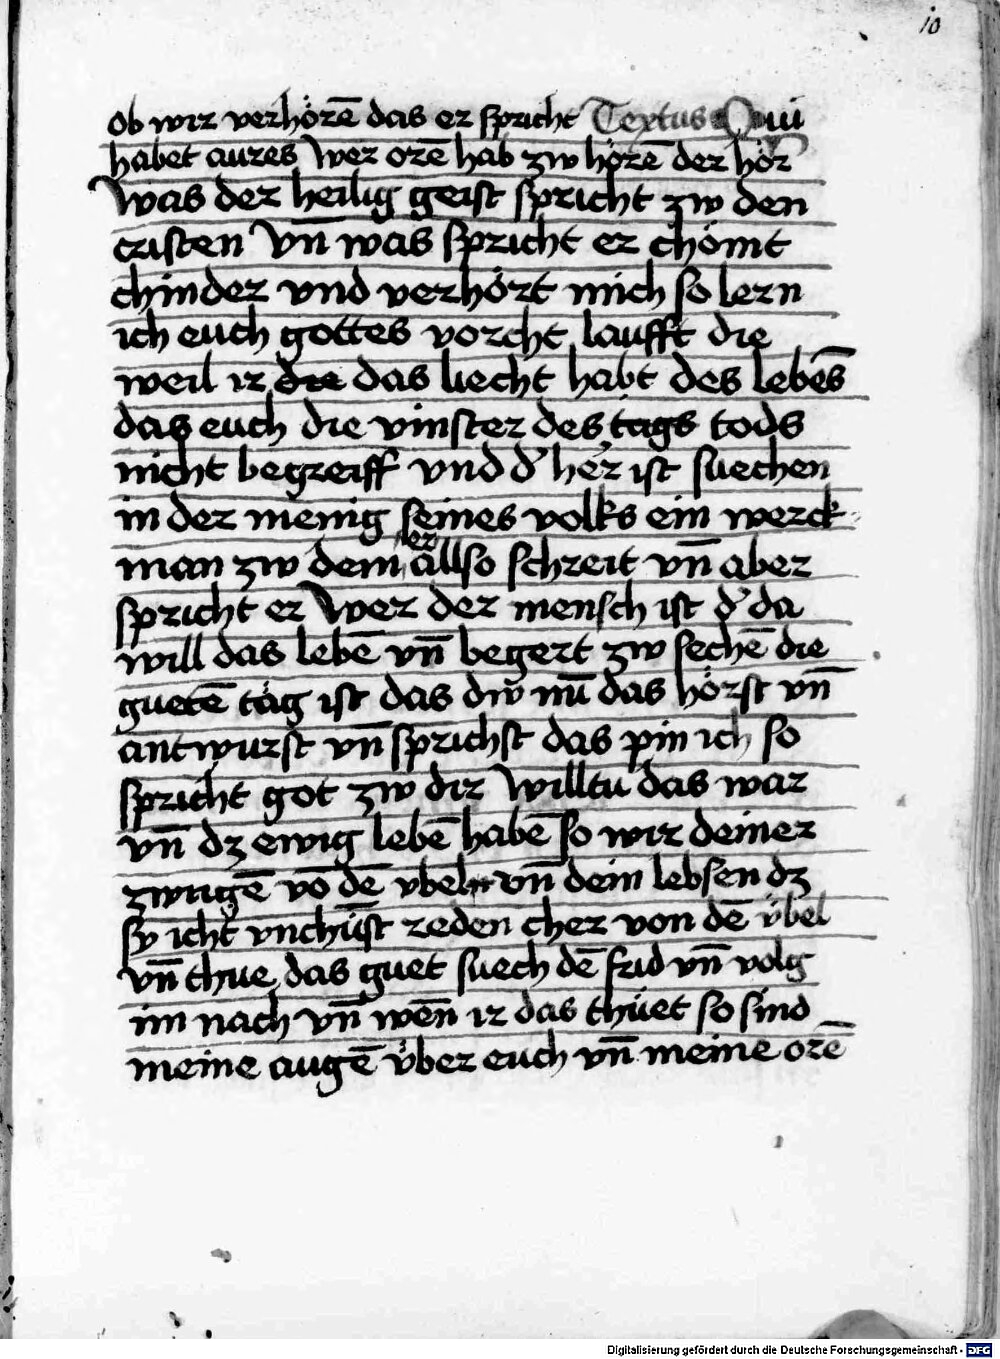 10
ob wir verhörē das er spricht Textus Qui
habet aures Wer orē hab zw hörē der hör
Was der heilig geist spricht zw den
cristen Vn̄ was spricht er chömt
chinder vnd verhört mich so lern
ich euch gottes vorcht laufft die
weil ir die das liecht habt des lebēs
das euch die vinster des tags tods
nicht begreiff vnd d' her ist suechen
in der menig seines volks ein werck
man zw dem er allso schreit vn̄ aber
spricht er Wer der mensch ist d' da
will das lebē vn̄ begert zw sechē die
guetē täg ist das dw nu̅ das hörst vn̄
antwurst vn̄ sprichst das pin ich so
spricht got zw dir Willtu das war
vn̄ dz ewig lebē habē so wir deiner
zwngē vō dē vbeln vn̄ dein lebsen dz
sy icht vnchüst reden cher von dē v̈bel
vn̄ thue das guet suech dē frid vn̄ volg
im nach vn̄ wen̄ ir das thüet so sind
meine augē v̈ber euch vn̄ meine orē
Digitalisierung gefördert durch die Deutsche Forschungsgemeinschaft - DFG